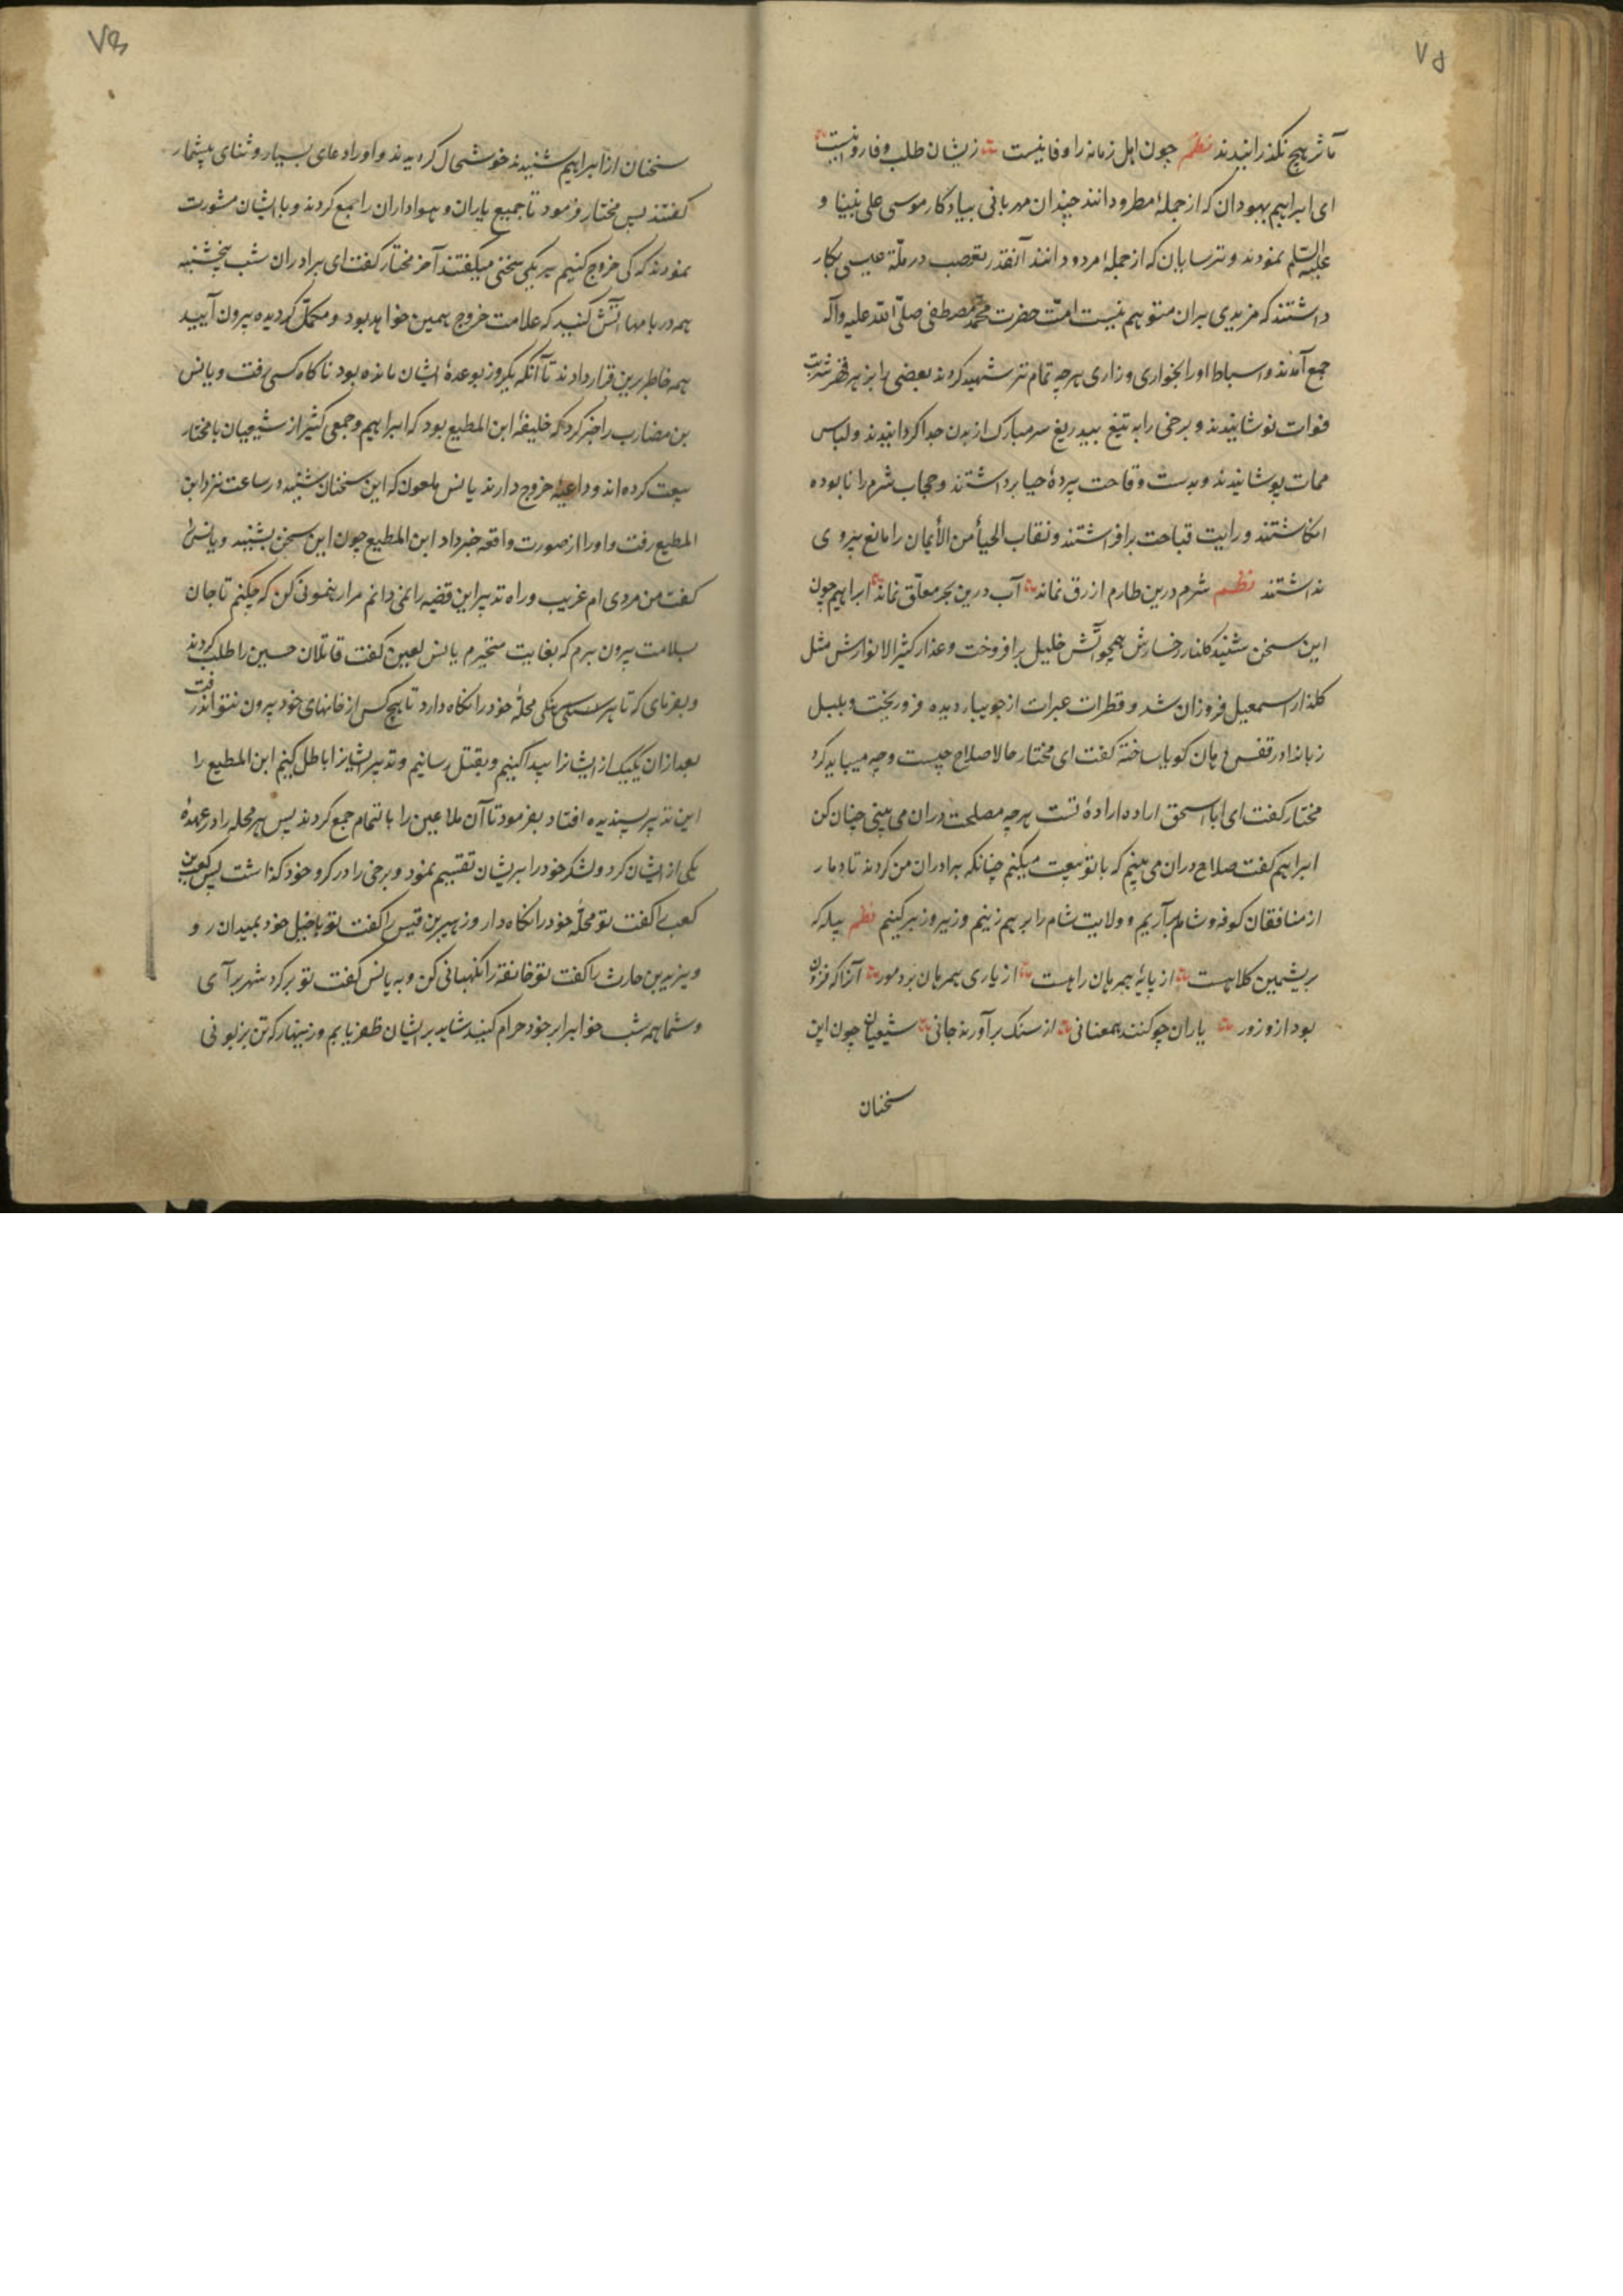 ۷۵
مآثر هیچ نگذرانیدند نظم چون اهل زمانه را وفا نیست زیشان طلب وفا روا نیست
ای ابراهیم یهودان که از جملهٔ مطرودانند چندان مهربانی بیادکار موسی علی نبینا و
علیه السلم نمودند و ترسایان که از جملهٔ مردودانند آنقدر تعصب در ملّة عیسی بکار
داشتند که مزیدی بران متوهم نیست امّت حضرت محمّد مصطفی صلّی اللّه علیه وآله
جمع آمدند و اسباط او را بخواری وزاری هرچه تمام تتر شهید کردند بعضی را بزهر قهر شربت
فوات نوشانیدند و برخی را به تیغ بیدریغ سر مبارک از بدن جدا کردانیدند و لباس
ممات پوشانیدند و بدست وقاحت پردهٔ حیا برداشتند و حجاب شرم را نابوده
انکاشتند و رایت قباحت برافراشتند و نقاب الحیأ من الأیمان را مانع بیروی
نداشتند نظم شرم درین طارم ازرق نماند آب درین بحر معلّق نماند ابراهیم چون
این سخن شنید کلنار رخسارش همچو آتش خلیل برافروخت و عذار کثیر الانوارش مثل
کلذار اسمعیل فروزان شد و قطرات عبرات از جویبار دیده فرو ریخت و بلبل
زبانرا در قفس دهان کویا ساخته کفت ای مختار حالا صلاح چیست و چه میباید کرد
مختار کفت ای ابا اسحق اراده ارادهٔ تست هرچه مصلحت دران می بینی چنان کن
ابراهیم کفت صلاح دران می بینم که با تو بیعت میکنم چنانکه برادران من کردند تا دمار
از منافقان کوفه و شام برآریم و ولایت شام را برهم زنیم و زیر و زبر کنیم نظم پیله که
بریشمین کلاهست از پایهٔ همرهان راهست از یاری همرهان برد مور آنرا که فزون
بود ازو زور یاران چو کنند همعنانی از سنک برآورند جانی شیعیان چون این
سخنان
۷۶
سخنان از ابراهیم شنیدند خوشحال کردیدند و او را دعای بسیار و ثنای بیشمار
کفتند پس مختار فرمود تا جمیع یاران و هواداران را جمع کردند و با ایشان مشورت
نمودند که کی خروج کنیم هر یکی سخنی میکفتند آخر مختار کفت ای برادران شب پنجشنبه
همه در بامها آتش کنید که علامت خروج همین خواهد بود و مکمّل کردیده بیرون آیید
همه خاطر برین قرار دادند تا آنکه یکروز بوعدهٔ ایشان مانده بود ناکاه کسی رفت و یانس
بن مضارب را خبر کرد که خلیفهٔ ابن المطیع بود که ابراهیم و جمعی کثیر از شیعیان با مختار
بیعت کرده اند و داعیهٔ خروج دارند یانس ملعون که این سخنان شنید در ساعت نزد ابن
المطیع رفت و او را از صورت واقعه خبر داد ابن المطیع چون این سخن بشنید و یانس را
کفت من مردی ام غریب و راه تدبیر این قضیه را نمی دانم مرا رهنمونی کن که چکنم تا جان
بسلامت بیرون برم که بغایت متحیرم یانس لعین کفت قاتلان حسین را طلب کردند
و بفرمای که تا هر یکی محلهٔ خود را نکاه دارد تا هیچکس از خانهای خود بیرون نتواند رفت
بعد ازان یکیک از ایشانرا پیدا کنیم و بقتل رسانیم و تدبیر ایشانرا باطل کنیم ابن المطیع را
این تدبیر پسندیده افتاد بفرمود تا آن ملاعین را بالتمام جمع کردند پس هر محله را در عهدهٔ
یکی از ایشان کرد و لشکر خود را بریشان تقسیم نمود و برخی را در کرو خود کذاشت پس کعب بن
کعب را کفت تو محلّهٔ خود را نکاه دار و زهیر بن قیس را کفت تو با خیل خود بمیدان رو
و یزید بن حارث را کفت تو خانقه را نکهبانی کن و به یانس کفت تو بر کرد شهر برآی
و شما همه شب خوابرا بر خود حرام کنید شاید بر ایشان ظفر یابیم و زینهار که تن بزبونی